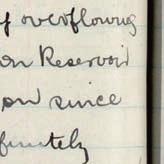 of overflowing
on Reservoir
on since
finitely